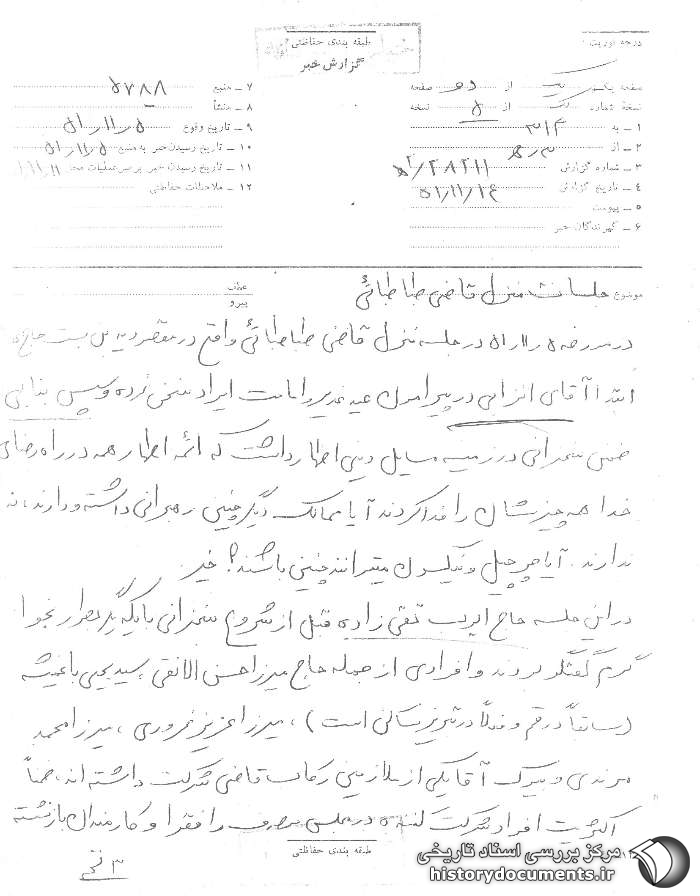 درجه فوریت :
طبقه بندی حفاظتی
گزارش خبر
صفحه یک از دو صفحه
نسخه شماره یک از ۵ نسخه
۱ ـ به ۳۱۲
۲ ـ از ۳ ر ه
۳ ـ شماره گزارش ۲۸۲۱۱/ه۳
۴ ـ تاریخ گزارش ۵۱/۱۱/۱۴
۵ ـ پیوست
۶ ـ گیرندگان خبر
۷ ـ منبع ۵۷۸۸
۸ ـ منشأ
۹ ـ تاریخ وقوع ۵ر۱۱ر۵۱
۱۰ ـ تاریخ رسیدن خبر به منبع ۵ر۱۱ر۵۱
۱۱ ـ تاریخ رسیدن خبر برهبر عملیات
۱۲ ـ ملاحظات حفاظتی
موضوع جلسات منزل قاضی طباطبائی
عطف
پیرو
در مورخه ۵ر۱۱ر۵۱ در جلسه منزل قاضی طباطبائی واقع در مقصودیه
ابتدا آقای انزابی در پیرامون عید غدیر و امامت ایراد سخن نموده و سپس بنابی
ضمن سخنرانی در زمینه مسایل دینی اظهار داشت که ائمه اطهار همه در راه رضای
خدا همه چیزشان را فدا کردند آیا ممالک دیگر چنین رهبرانی داشته و دارند، نه
ندارند . آیا چرچیل و نیکسون میتوانند چنین باشند؟ خیر
در این جلسه حاج ایوب تقی زاده قبل از شروع سخنرانی با یکدیگر بطور نجوا
گرم گفتگو بودند و افرادی از جمله حاج میرزا حسن الانقی ، سید یحیی باغمیشه
(سابقاً در قم و فعلاً در تبریز ساکن است) ، میرزا عزیز غروری ، میرزا محمد
مرندی و بیوک آقا یکی از ملازمین رکاب قاضی شرکت داشته اند، ضمناً
اکثریت افراد شرکت کننده در مجلس را فقرا و کارمندان بازنشسته
طبقه بندی حفاظتی
مرکز بررسی اسناد تاریخی
historydocuments.ir